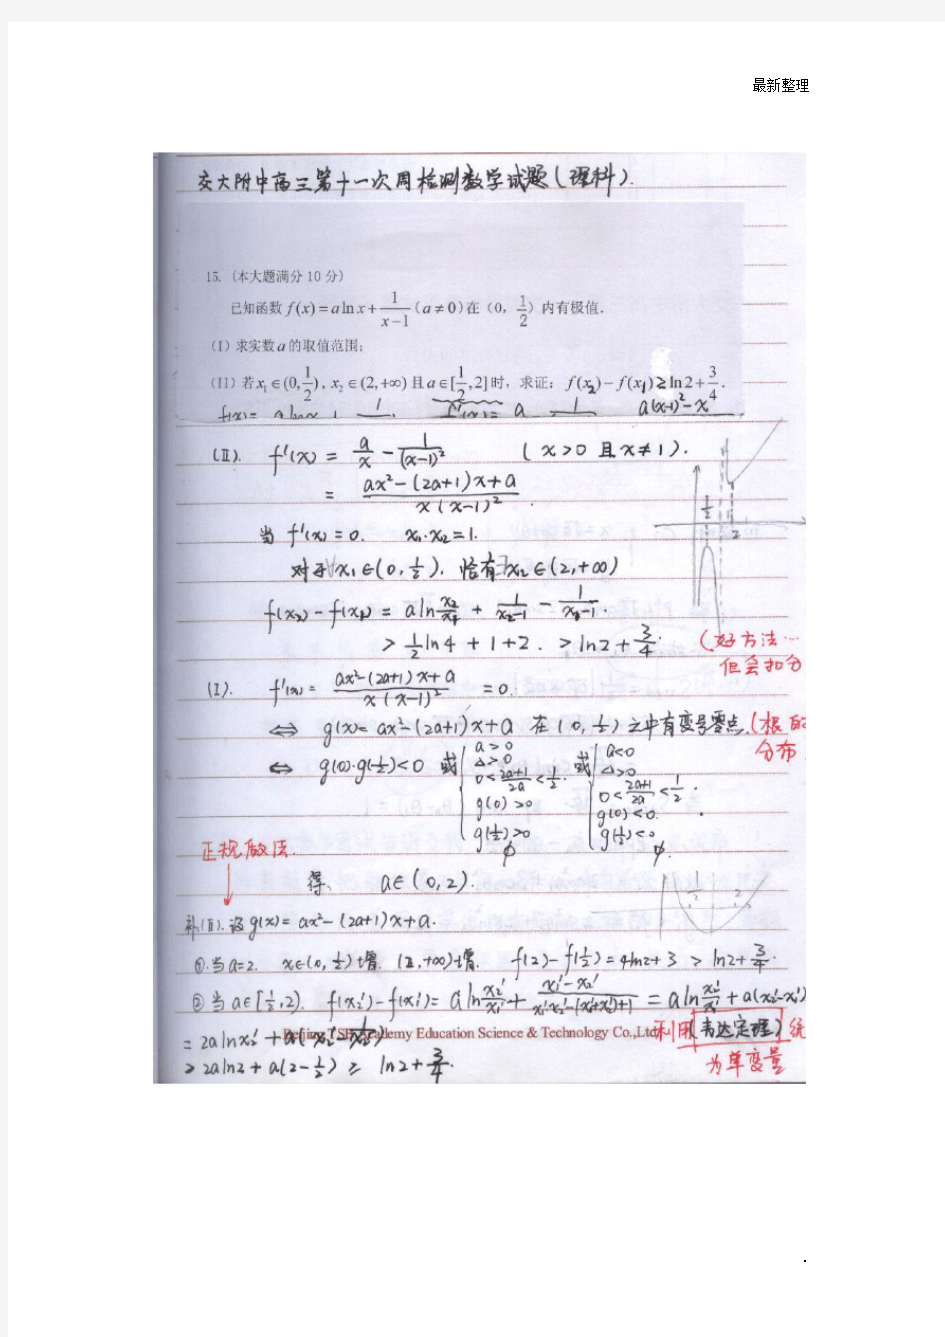 最新整理
交大附中高三第十一次周检测数学试题(理科).
15. (本大题满分 10 分)
已知函数 f(x) = a ln x + 1/(x-1) (a ≠ 0) 在 (0, 1/2) 内有极值.
(I) 求实数 a 的取值范围;
(II) 若 x₁ ∈ (0, 1/2), x₂ ∈ (2, +∞) 且 a ∈ [1/2, 2] 时, 求证: f(x₂) - f(x₁) ≥ ln 2 + 3/4.
(II). f'(x) = a/x - 1/(x-1)² (x>0 且 x≠1).
= (ax²-(2a+1)x+a)/(x(x-1)²).
当 f'(x)=0. x₁·x₂=1.
对于∀x₁∈(0,1/2). 恰有∃x₂∈(2,+∞)
f(x₂)-f(x₁) = a ln x₂/x₁ + 1/(x₂-1) - 1/(x₁-1).
> 1/2 ln4 + 1+2. > ln2+3/4.
(好方法…
但会扣分
(I). f'(x) = (ax²-(2a+1)x+a)/(x(x-1)²) = 0.
⇔ g(x)=ax²-(2a+1)x+a 在(0,1/2)之中有变号零点.
(根的
分布
⇔ g(0)·g(1/2)<0 或 { a>0 △>0 0<(2a+1)/2a<1/2. g(0)>0 g(1/2)>0 ∅ 或 { a<0 △>0 0<(2a+1)/2a<1/2. g(0)<0. g(1/2)<0 ∅.
正规做法.
得: a∈(0,2).
补(II). 设g(x)=ax²-(2a+1)x+a.
①.当a=2. x∈(0,1/2)增. (2,+∞)增. f(2)-f(1/2)=4ln2+3 > ln2+3/4.
②当a∈[1/2,2). f(x₂')-f(x₁')= a ln x₂'/x₁' + (x₁'-x₂')/(x₁'x₂'-(x₁'+x₂')+1) = a ln x₂'/x₁' + a(x₂'-x₁')
= 2a ln x₂' + a(x₂'-1/x₂')
Academy Education Science & Technology Co.,Ltd
利用(韦达定理)统
> 2a ln2 + a(2-1/2) ≥ ln2+3/4.
为单变量